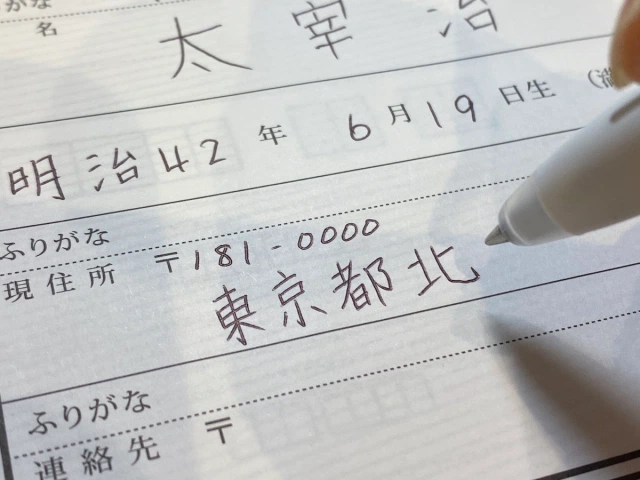 がな
名 太宰治
明治42年 6月19日生 (満
ふりがな
〒181-0000
現住所 東京都北
ふりがな
連絡先 〒